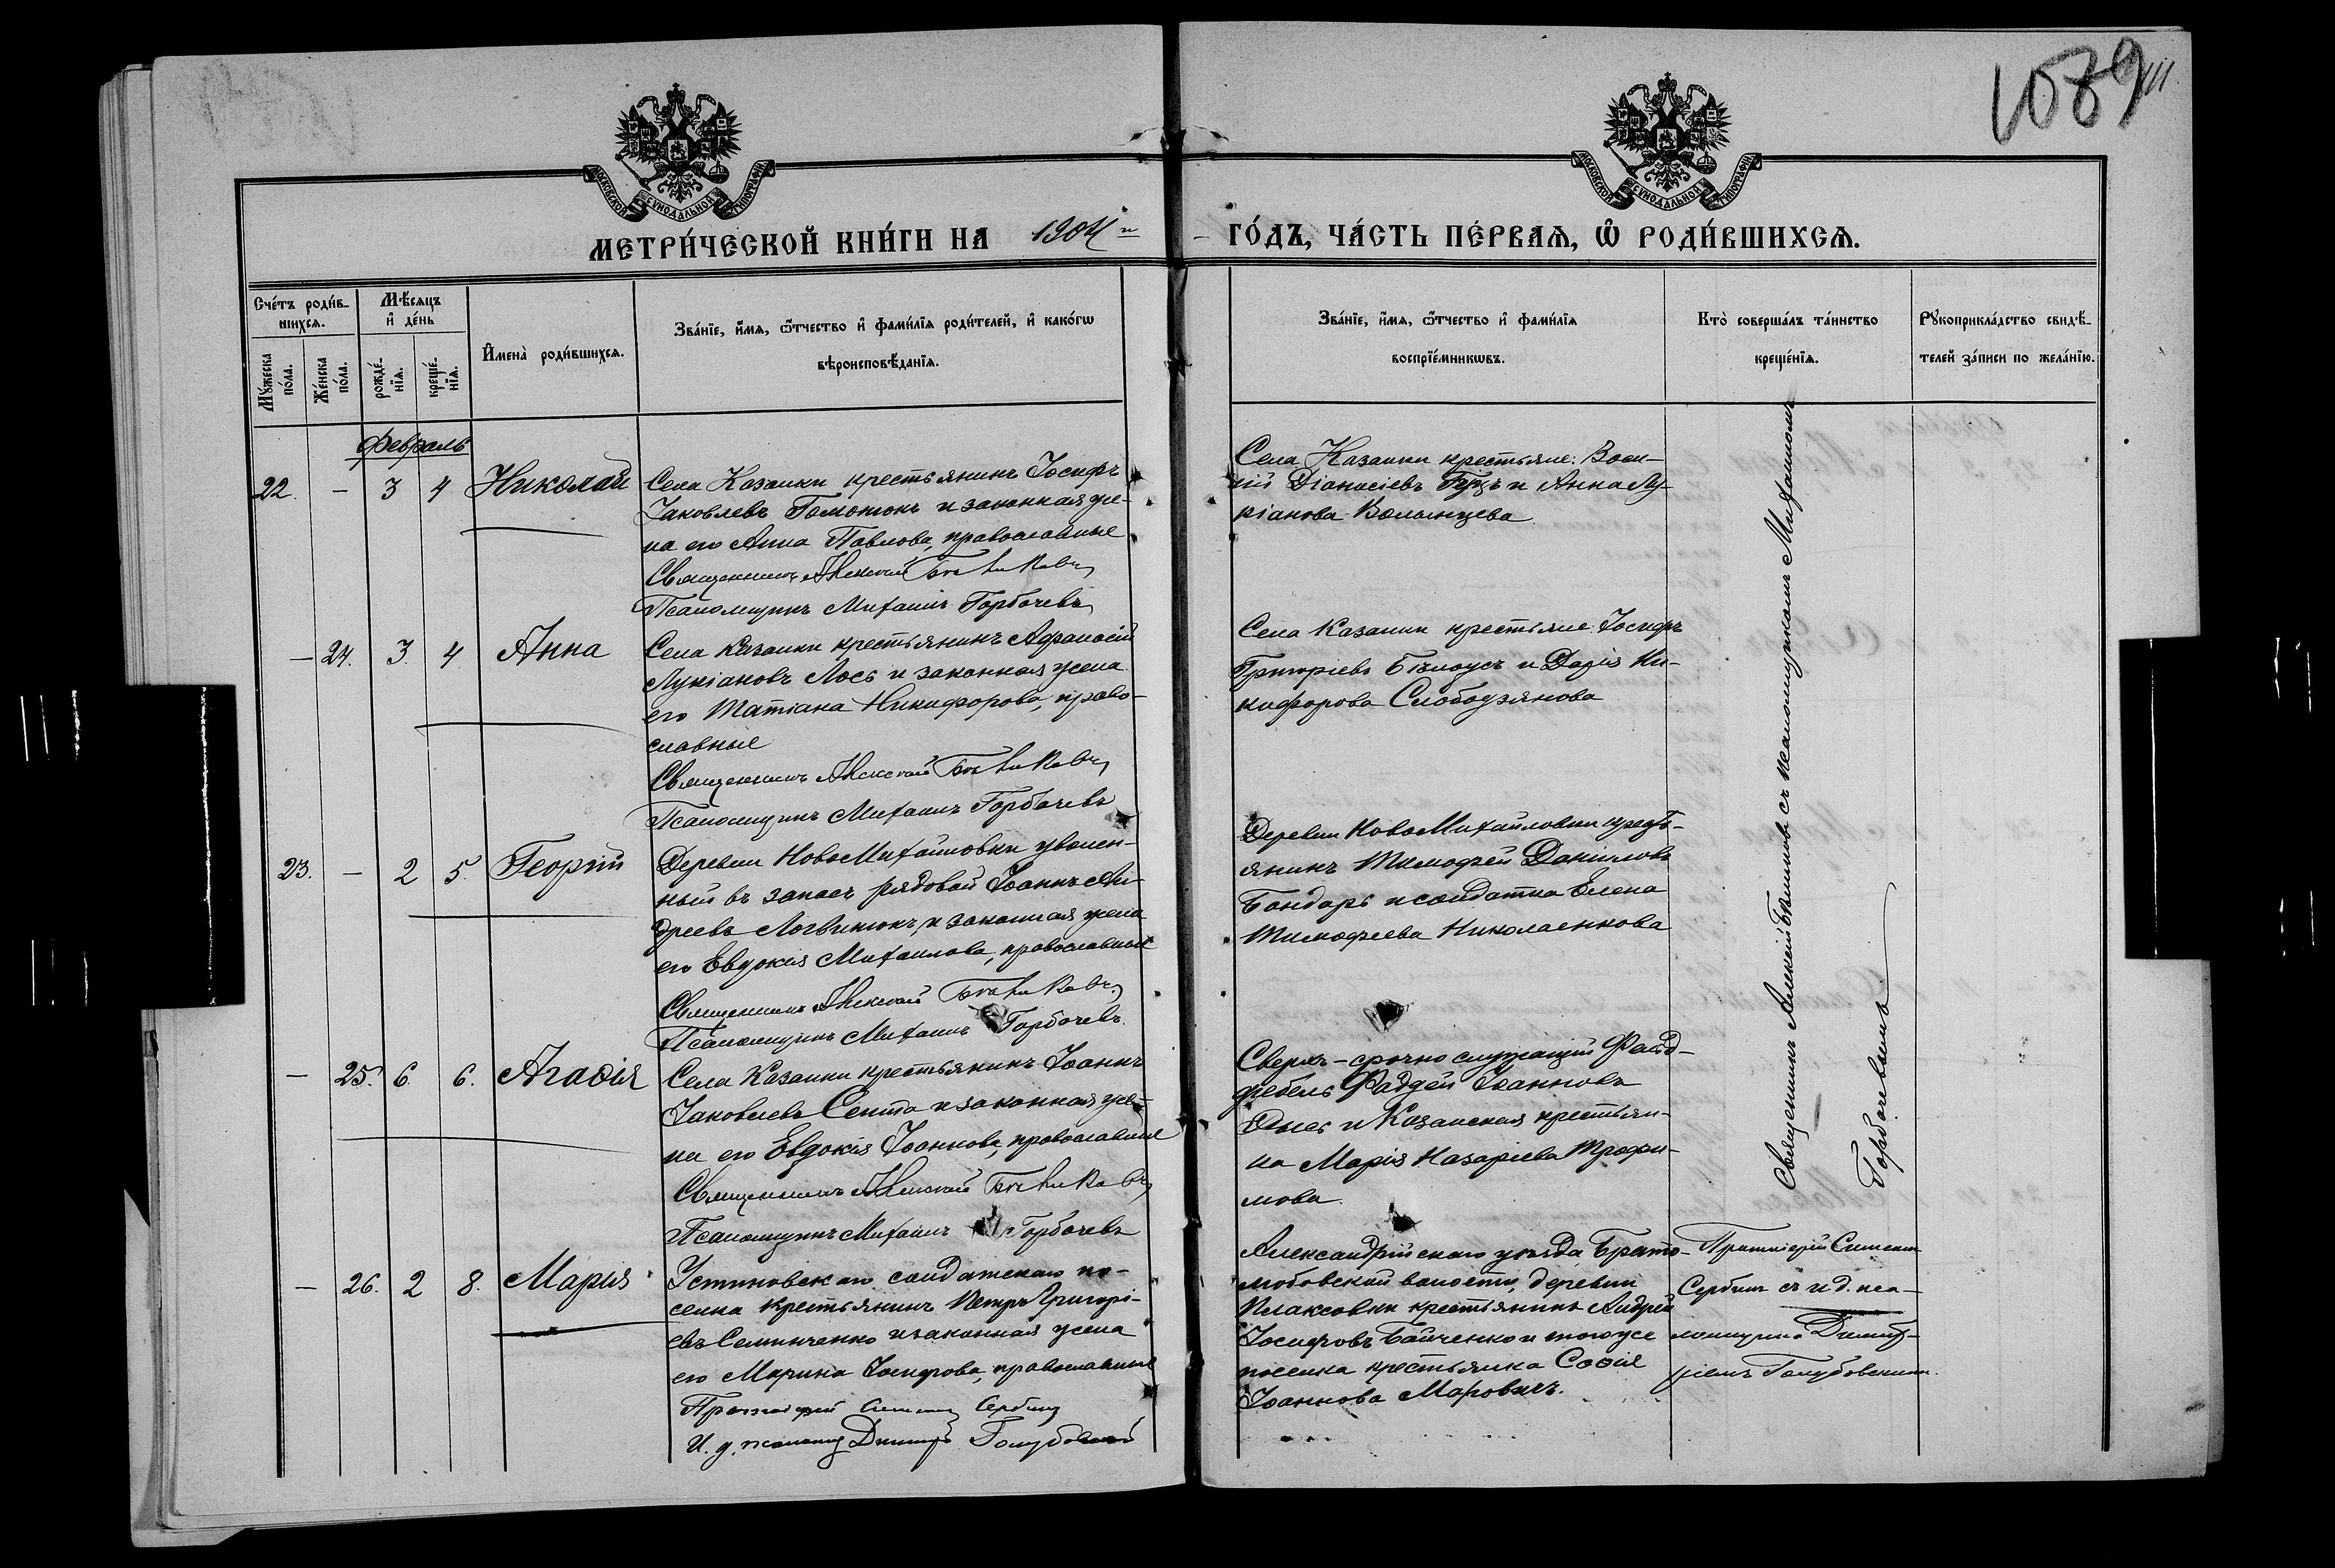 1089
111
МОСКОВСКОЙ СѴНОДАЛЬНОЙ ТИПОГРАФІИ
МОСКОВСКОЙ СѴНОДАЛЬНОЙ ТИПОГРАФІИ
МЕТРИ́ЧЕСКОЙ КНИ́ГИ НА 1904й
ГО́ДЪ, ЧА́СТЬ ПЕ́РВАѦ, Ѡ҆ РОДИ́ВШИХСѦ.
Сче́тъ роди́в-
шихсѧ.
Мѣ́сѧцъ
и҆ де́нь
Мꙋ́жеска
по́ла.
Же́нска
по́ла.
рожде́-
нїѧ.
креще́-
нїѧ.
И҆мена̀ роди́вшихсѧ.
Зва́нїе, и҆́мѧ, ѻ҆́тчество и҆ фами́лїѧ роди́телей, и҆ како́гѡ
вѣроисповѣ́данїѧ.
Зва́нїе, и҆́мѧ, ѻ҆́тчество и҆ фами́лїѧ
воспрїе́мникѡвъ.
Кто̀ соверша́лъ та́инство
креще́нїѧ.
Рꙋкоприкла́дство свидѣ́-
телей за́писи по жела́нїю.
Февраль
22. — 3 4 Николай
Села Казанки крестьянинъ Іосифъ
Іаковлевъ Гомонюкъ и законная же-
на его Анна Павлова, православные
Священникъ Алексей
Псаломщикъ Михаилъ Горбачевъ
Села Казанки крестьяне: Васи-
лій Діанисіевъ и Анна Лу-
кіанова Волынцева
— 24. 3. 4 Анна
Села Казанки крестьянинъ Афанасій
Лукіановъ Лось и законная жена
его Татіана Никифорова, право-
славные
Священникъ Алексей
Псаломщикъ Михаилъ Горбачевъ
Села Казанки крестьяне: Іосифъ
Григоріевъ Бѣлоусъ и Дарія Ни-
кифорова Слободзянова
23. — 2 5. Георгій
Деревни НовоМихайловки уволен-
ный въ запасъ рядовой Іоаннъ Ан-
дреевъ Логвинюкъ и законная жена
его Евдокія Михаилова, православные
Священникъ Алексей
Псаломщикъ Михаилъ Горбачевъ
Деревни НовоМихайловки кресть-
янинъ Тимофей Даниловъ
Бондарь и солдатка Елена
Тимофеева Николаенкова
— 25. 6. 6. Агаѳія
Села Казанки крестьянинъ Іоаннъ
Іаковлевъ Сента и законная же-
на его Евдокія Іоаннова, православные
Священникъ Алексей
Псаломщикъ Михаилъ Горбачевъ
Сверхъ-срочно служащій Фельд-
фебель Фаддей Іоанновъ
и Казанская крестьян-
ка Марія Назаріева Трофи-
мова.
— 26. 2 8. Марія
Устиновскаго солдатскаго по-
селка крестьянинъ Петръ Григорі-
евъ Семинченко и законная жена
его Марина Іосифова, православные
Протоіерей Симеонъ Сербинъ
И. д. псаломщ Димитр Голубовскій
Александрійскаго уѣзда, Брато-
любовской волости, деревни
Плаксовки крестьянинъ Андрей
Іосифовъ Байченко и тогоже
поселка крестьянка Софія
Іоаннова Маровичъ.
Протоіерей Симеонъ
Сербинъ съ и. д. пса-
ломщика Димит-
ріемъ Голубовскимъ.
Священникъ Алексей съ псаломщикомъ Михаиломъ
Горбачевымъ